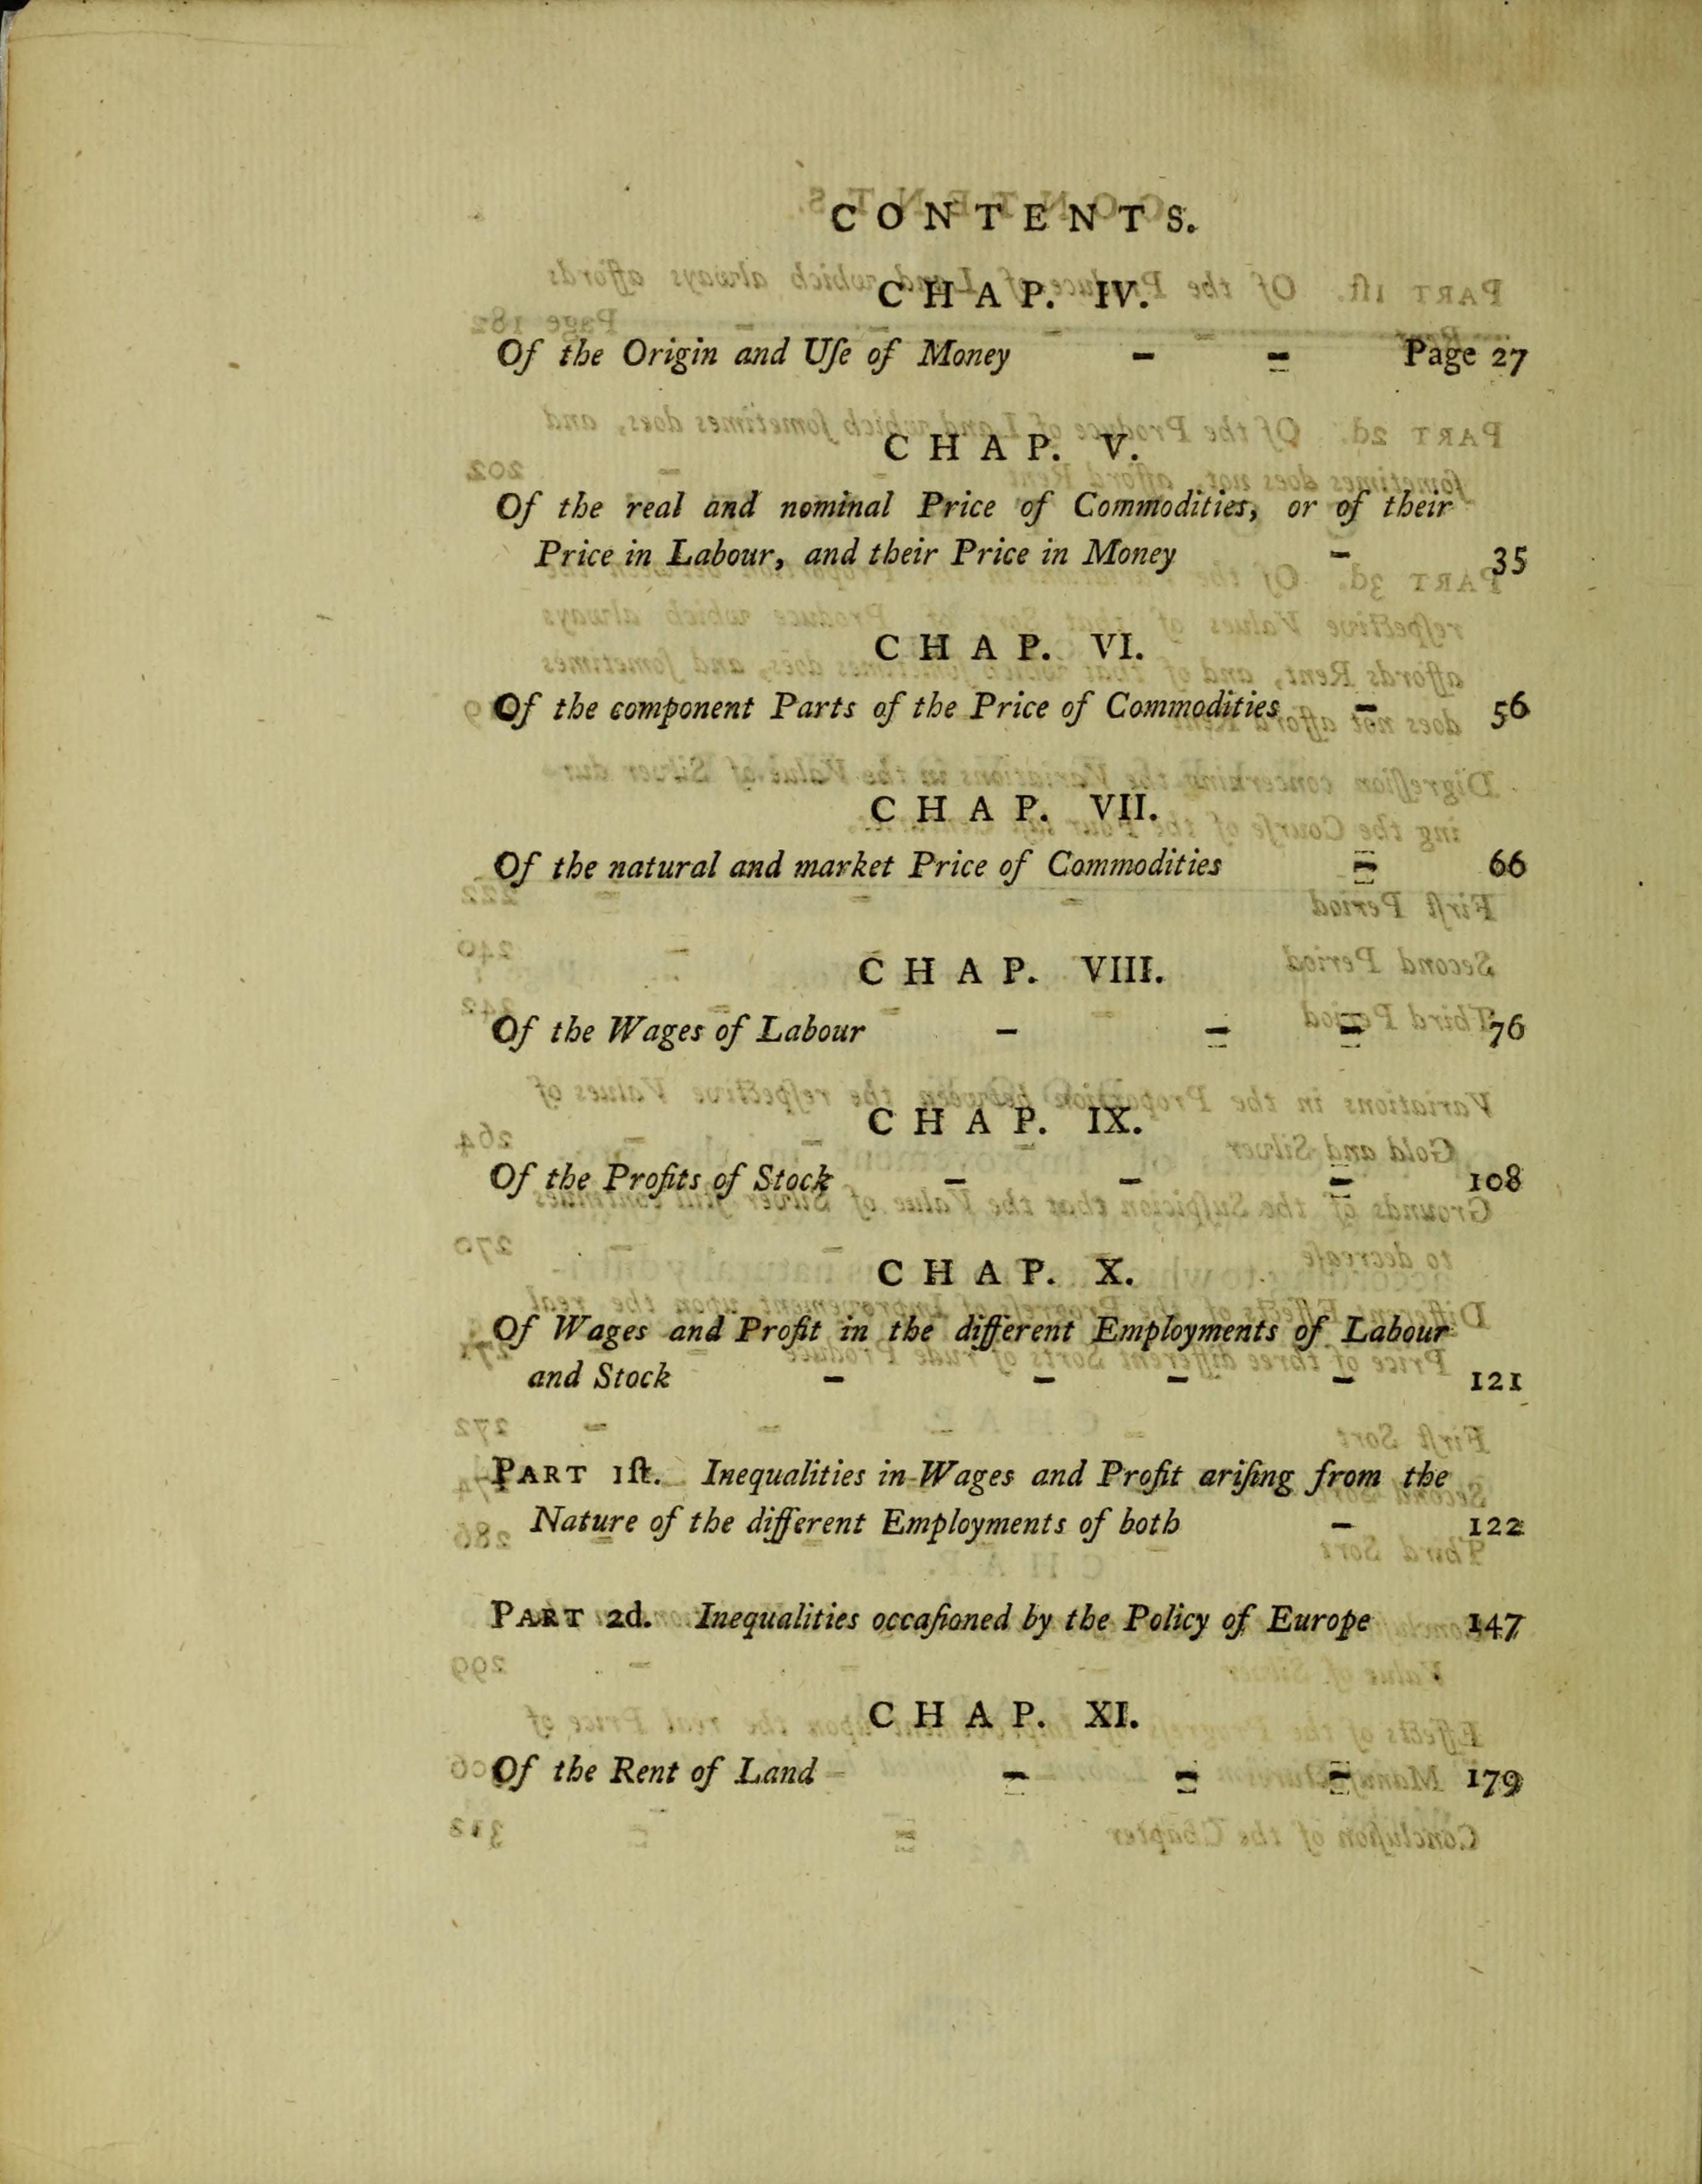 CONTENTS.
CHAP. IV.
Of the Origin and Uſe of Money - - Page 27
CHAP. V.
Of the real and nominal Price of Commodities, or of their
Price in Labour, and their Price in Money - 35
CHAP. VI.
Of the component Parts of the Price of Commodities - 56
CHAP. VII.
Of the natural and market Price of Commodities - 66
CHAP. VIII.
Of the Wages of Labour - - - 76
CHAP. IX.
Of the Profits of Stock - - - 108
CHAP. X.
Of Wages and Profit in the different Employments of Labour
and Stock - - - - 121
PART 1ſt. Inequalities in Wages and Profit ariſing from the
Nature of the different Employments of both - 122
PART 2d. Inequalities occaſioned by the Policy of Europe 147
CHAP. XI.
Of the Rent of Land - - - 179